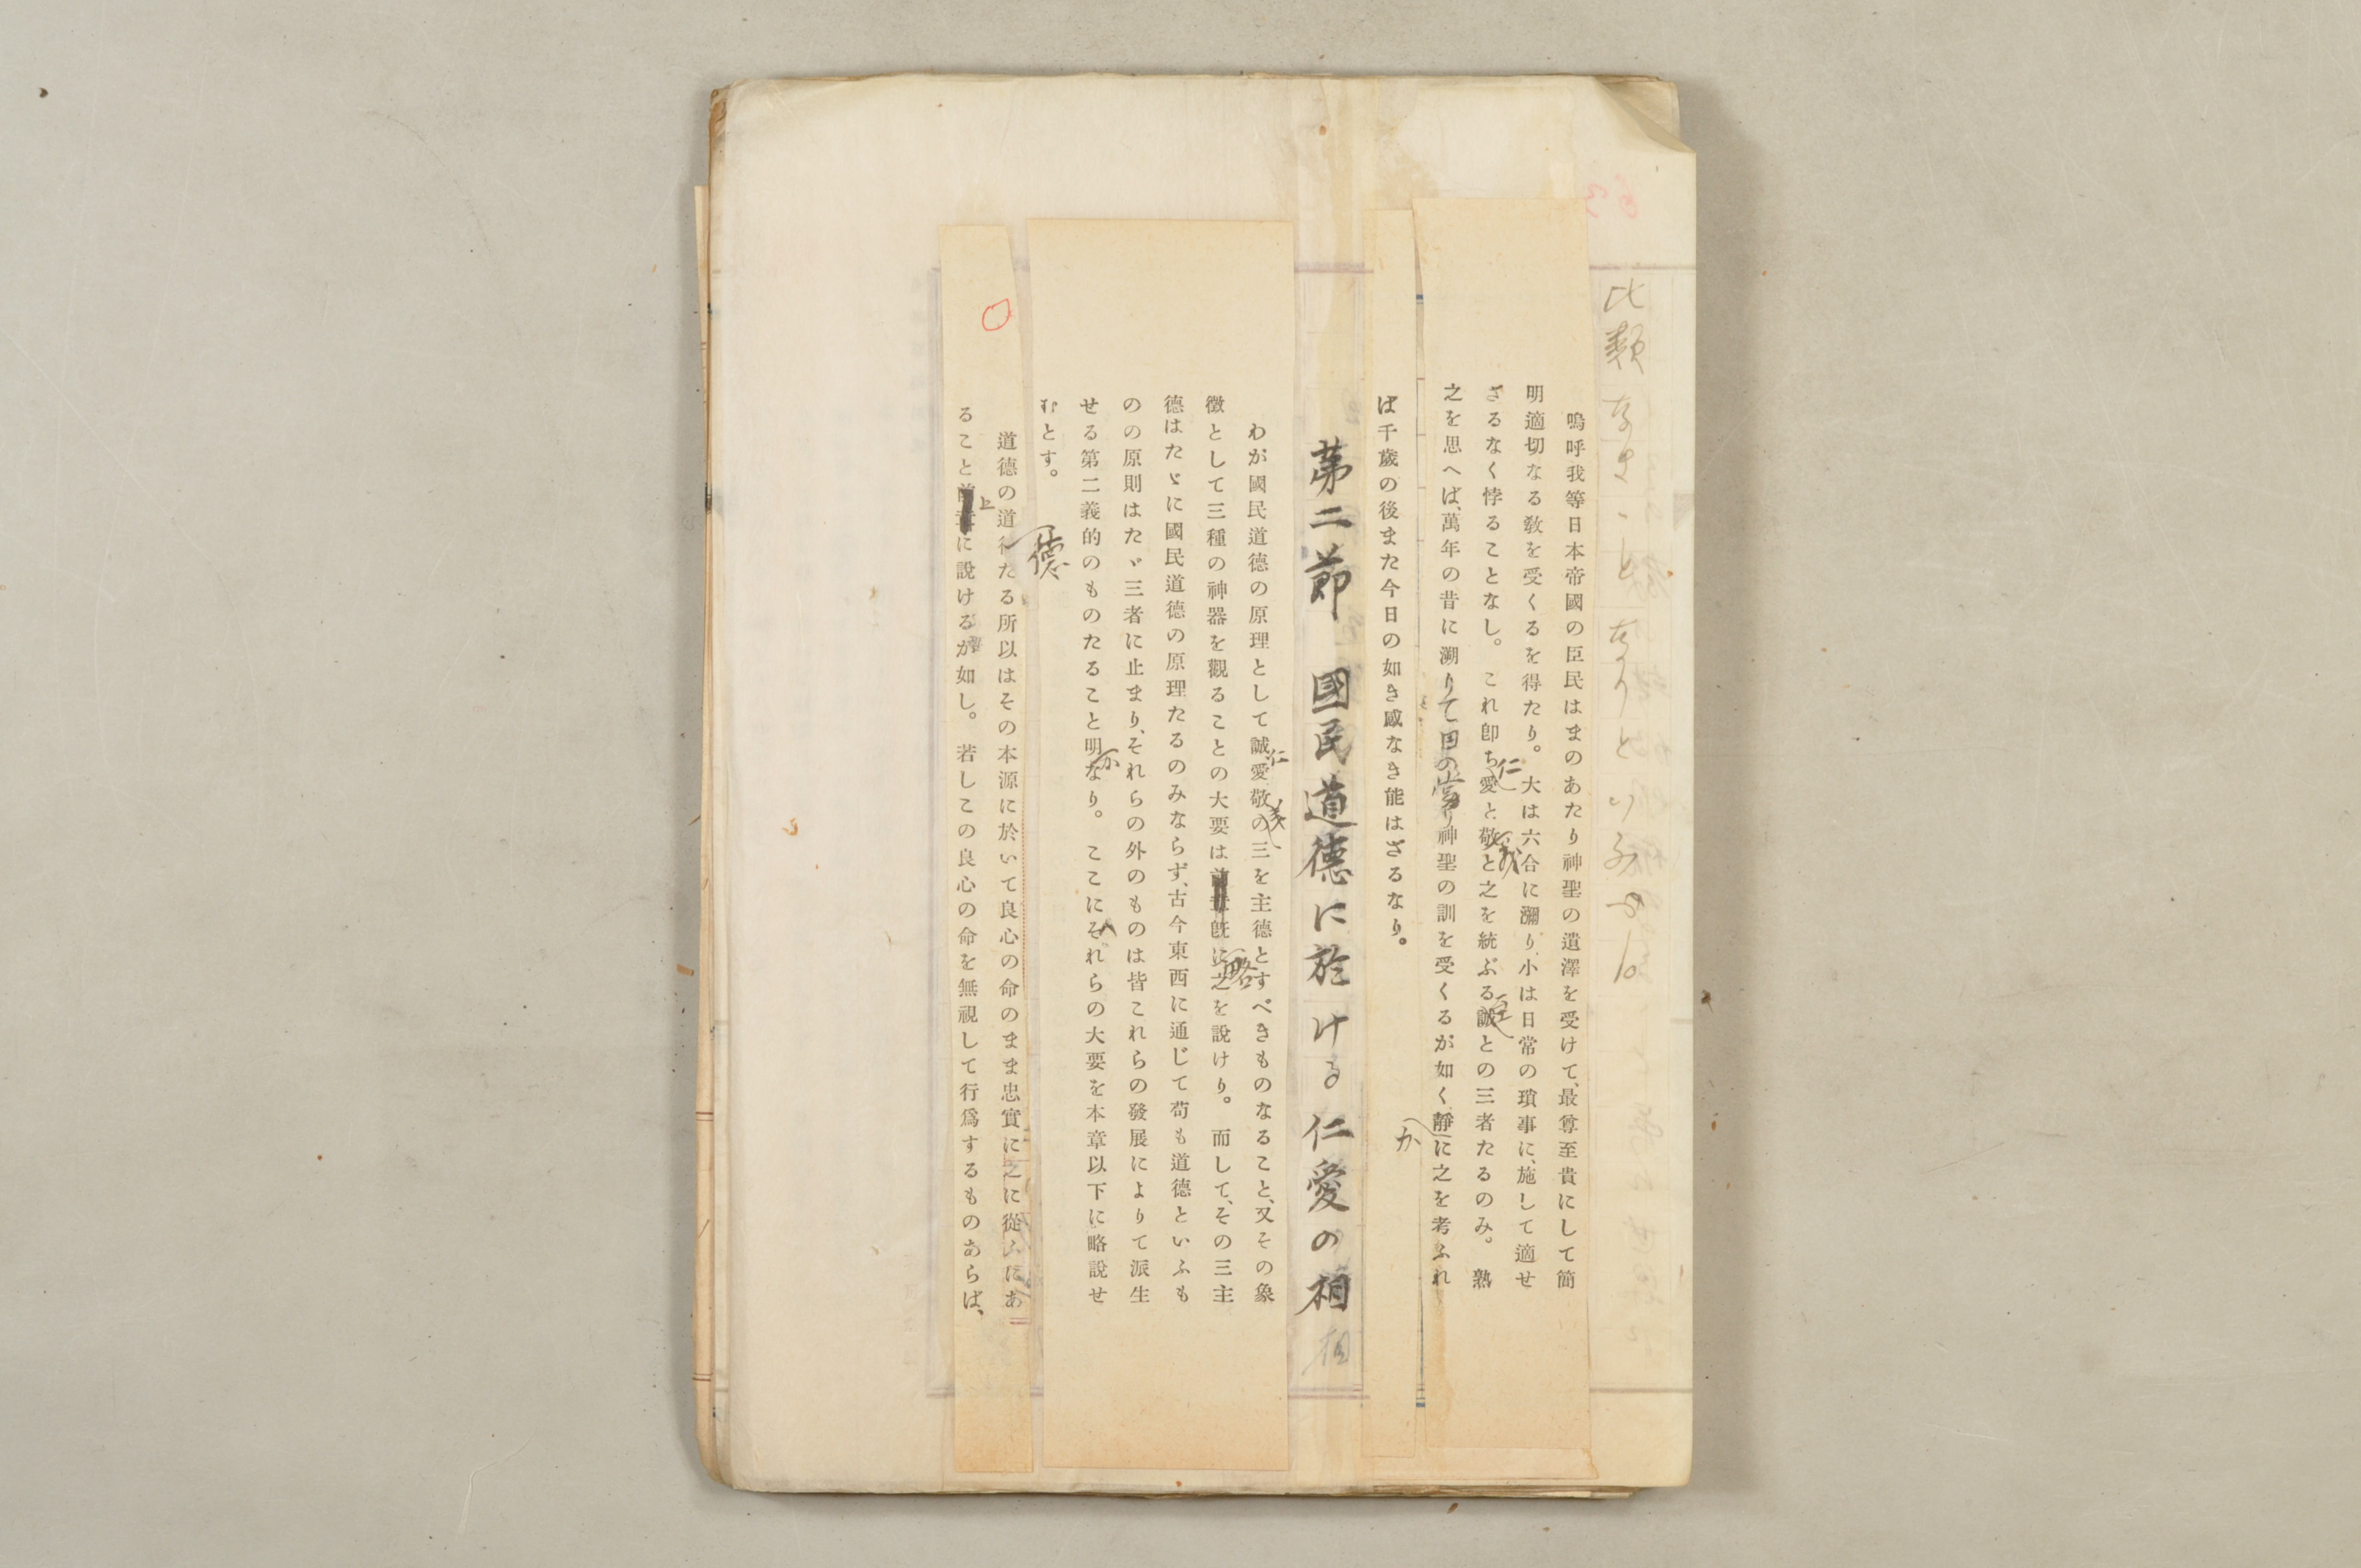 比類なきことなりといふべし
嗚呼我等日本帝國の臣民はまのあたり神聖の遺澤を受けて、最尊至貴にして簡
明適切なる教を受くるを得たり。大は六合に瀰り、小は日常の瑣事に、施して適せ
ざるなく悖ることなし。これ卽ち愛と敬と之を統ぶる誠との三者たるのみ。熟
仁
義
之を思へば、萬年の昔に溯りて田の當り神聖の訓を受くるが如く靜に之を考ふれ
か
ば千歲の後また今日の如き感なき能はざるなり。
第二節　國民道德に於ける仁愛の相
わが國民道德の原理として誠愛敬の三を主德とすべきものなること、又その象
仁
義
徵として三種の神器を觀ることの大要は旣に之を說けり。而して、その三主
略
德はたゞに國民道德の原理たるのみならず、古今東西に通じて苟も道德といふも
のの原則はたゞ三者に止まり、それらの外のものは皆これらの發展によりて派生
せる第二義的のものたること明なり。ここにそれらの大要を本章以下に略說せ
か
むとす。
道德の道たる所以はその本源に於いて良心の命のまま忠實に之に從ふにあ
德
ること前章に說けるが如し。若しこの良心の命を無視して行爲するものあらば、
上